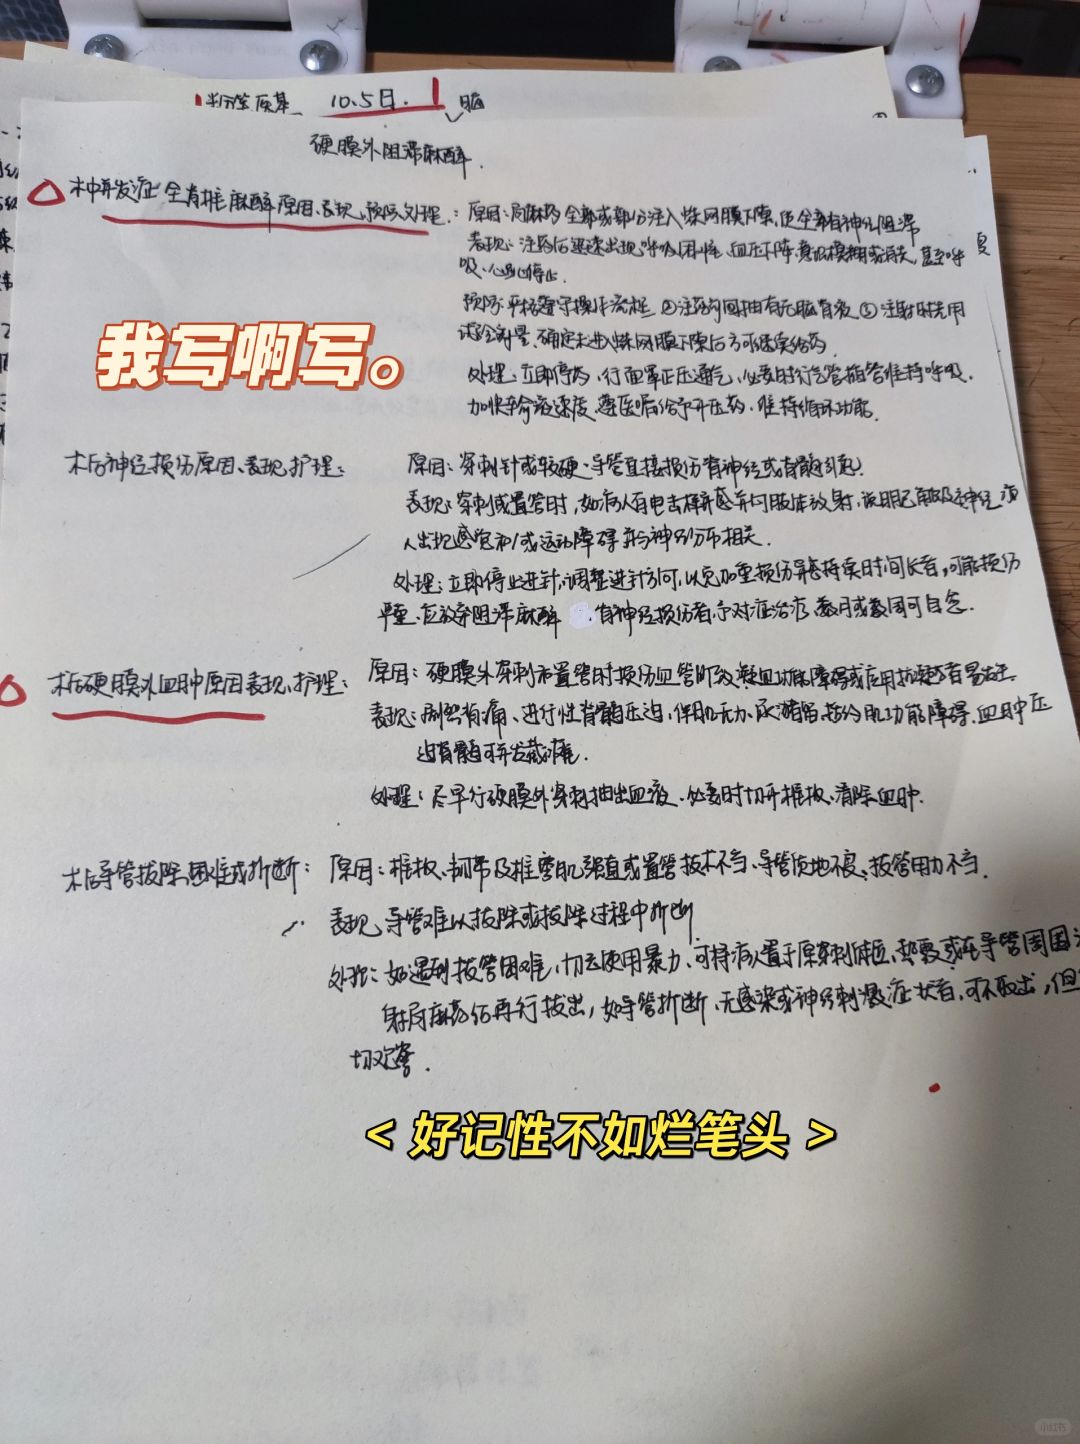 10.5日.
硬膜外阻滞麻醉.
术中并发症 全脊椎麻醉原因、表现、预防、处理：原因：局麻药全部或部分注入蛛网膜下隙，使全部脊神经阻滞
表现：注药后迅速出现呼吸困难、血压下降，意识模糊或消失，甚至呼
吸、心跳停止.
预防：严格遵守操作流程 ②注药前回抽有无脑脊液 ③注射时先用
试验剂量、确定未进入蛛网膜下隙后方可继续给药
我写啊写。
处理：立即停药，行面罩正压通气，必要时行气管插管维持呼吸.
加快输液速度、遵医嘱给予升压药、维持循环功能.
术后神经损伤原因、表现、护理： 原因：穿刺针或较硬导管直接损伤脊神经或脊髓引起.
表现：穿刺或置管时，如病人有电击样异感并向肢体放射，说明已触及神经 病
人出现感觉和/或运动障碍 并与神经分布相关.
处理：立即停止进针，调整进针方向，以免加重损伤 异感持续时间长者，可能损伤
严重，应放弃阻滞麻醉 脊神经损伤者，予对症治疗、数月或数周可自愈.
术后硬膜外血肿原因表现、护理： 原因：硬膜外穿刺和置管时损伤血管所致 凝血功能障碍或应用抗凝药者易发生
表现：剧烈背痛、进行性脊髓压迫，伴肌无力、尿潴留、括约肌功能障碍. 血肿压
迫脊髓可并发截瘫.
处理：尽早行硬膜外穿刺抽出血液、必要时切开椎板、清除血肿.
术后导管拔除困难或折断： 原因：椎板、韧带及椎旁肌强直或置管技术不当、导管质地不良、拔管用力不当.
表现、导管难以拔除或拔除过程中折断
处理：如遇到拔管困难，切忌使用暴力、可将病人置于原穿刺体位、热敷或在导管周围注
射局麻药后再行拔出，如导管折断、无感染或神经刺激症状者，可不取出，但
切观察.
< 好记性不如烂笔头 >
小红书